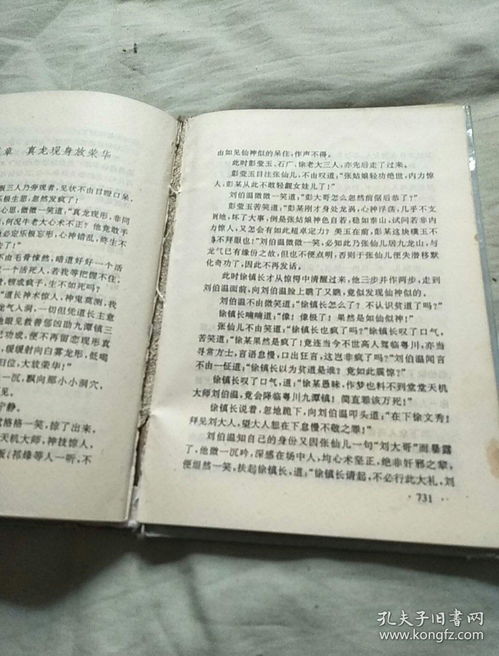 章 真龙现身放荣华
板三人乃旁观者，见状不由目瞪口呆
乐极生悲，忽然发疯了！
心思，微微一笑道：“真龙现形，非同
，何况牛老大心术不正？他竟敢于
必定乐极忘形，心神错乱，终生不
由毛骨悚然，暗道好好一个活
一个活死人，若我等把握不住，
，顿成疯子，生不如死吗？
“道长神术惊人，神鬼莫测，我
龙气人洞，一切但凭道长主意
眼见救善郁凶助九潭镇三
已功成，便不再延误现形，
，缓缓射向白雾龙形，低喝
归位，大放荣华！”
沉，飘向那小小洞穴，
宁静。
格格一笑，掠了出来，
天机大师，神技惊人，
板（祁缘等人一听，不
由如见仙神似的呆住，作声不得。
此时彭莹玉、石广、徐老大三人，亦先后走了过来。
彭莹玉目注张仙儿，不由叹道：“张姑娘轻功绝世，内力惊
人，彭某从此不敢轻觑女娃儿了！”
刘伯温微微一笑道：“彭大哥怎么忽然前倨后恭了？”
彭莹玉苦笑道：“彭某刚才身处龙涡，心神浮荡，几乎不支
倒地，坏了大事，倒是张姑娘神色自若，稳如泰山，试问若非内
力惊人，怎么会有如此超卓定力？美玉在前，彭某还敢有眼无玉
不拜眼也！”刘伯温微微一笑，必知此乃张仙儿幼九龙山，与
龙气已有缘份之故，但也不便点明，否则于张仙儿便失潜移默
化奇功了，因此不再发话。
此时徐镇长才从惊愕中清醒过来，他三步并作两步，走到
刘伯温面前，向刘伯温脸上瞧了又瞧，竟似发现仙神似的。
刘伯温不由微笑道：“徐镇长怎么了？不认识贫道了吗？”
徐镇长喃喃道：“像！像极了！果然是如仙似神！”
张仙儿不由笑道：“徐镇长也疯了吗？”徐镇长叹了口气，
苦笑道：“徐某果然是疯了！竟连当今不世高人驾临粤川，亦当
寻常方士，言语怠慢，口出狂言，这岂非疯了吗？”刘伯温闻言
不由一怔道：“徐镇长以为贫道是谁？竟如此震惊？”
徐镇长叹了口气，道：“徐某愚昧，作梦也料不到堂堂天机
大师刘伯温，竟会降临粤川九潭镇！简直罪该万死！”
徐镇长说着，忽地跪下，向刘伯温叩头道：“在下徐文秀！
拜见刘大人，望大人恕在下怠慢不敬之罪！”
刘伯温知自己的身份又因张仙儿一句“刘大哥”而暴露
了，他微一沉吟，深感在场中人，均心术至正，绝非奸邪之辈，
便坦然一笑，扶起徐镇长，道：“徐镇长请起，不必行此大礼，刘
731
孔夫子旧书网
www.kongfz.com